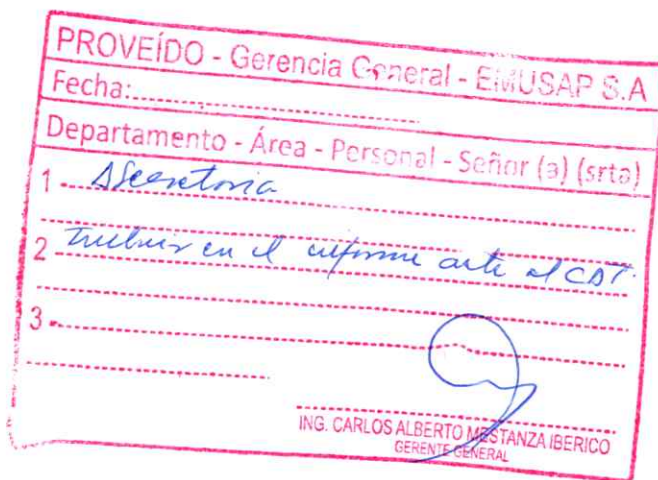 PROVEÍDO - Gerencia General - EMUSAP S.A
Fecha:
Departamento - Área - Personal - Señor (a) (srta)
1 -
2 - en el informe ante al CDT.
3 -
ING. CARLOS ALBERTO MESTANZA IBERICO
GERENTE GENERAL